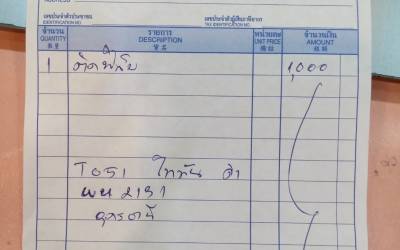 ADDRESS
เลขประจำตัวประชาชน
IDENTIFICATION NO.
เลขประจำตัวผู้เสียภาษีอากร
TAX IDENTIFICATION NO.
จำนวน รายการ หน่วยละ จำนวนเงิน
QUANTITY DESCRIPTION UNIT PRICE AMOUNT
1 ติดฟิล์ม 1,000
TO51 ไททัน ดำ
ผผ 2151
อุดรธานี